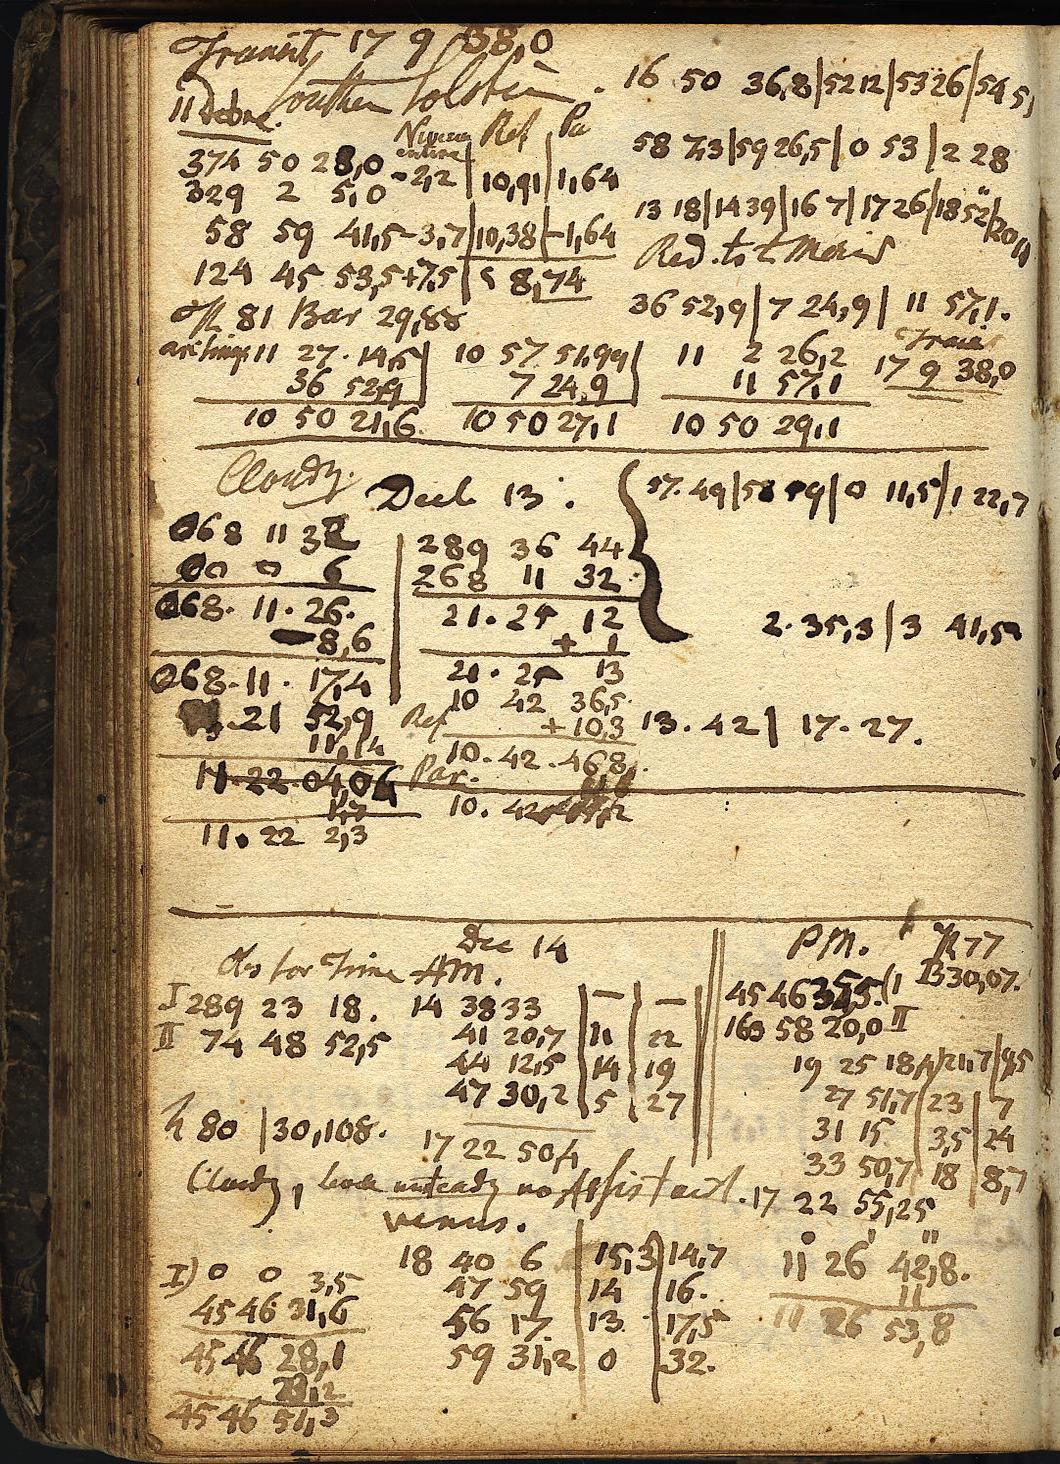 Transit, 17 9 38,0
Southern Solstice.
11 Debre.
Ref | Pa
374 50 28,0 -2,2 | 10,91 | 1,64
329 2 5,0
58 59 41,5 -3,7 | 10,38 | -1,64
124 45 53,5 +7,5 | 8,74
Th 81 Bar 29,88
16 50 36,8 | 52 12 | 53 26 | 54 5,
58 7,3 | 59 26,5 | 0 53 | 2 28
13 18 | 14 39 | 16 7 | 17 26 | 18 52"
Red. to t Merid
36 52,9 | 7 24,9 | 11 57,1.
Transit
17 9 38,0
11 27 14,5 | 10 57 51,99 | 11 2 26,2
36 52,9 | 7 24,9 | 11 57,1
10 50 21,6 10 50 27,1 10 50 29,1
Cloudy.
Decb 13.
57.49 | 58 59 | 0 11,5 | 1 22,7
2.35,3 | 3 41,5
13.42 | 17.27.
068 11 32
00 0 6
068.11.26.
-8,6
068.11.17,4
21 52,9
11,14
11.22.04,04
11.22 2,3
289 36 44
268 11 32
21.25 12
+ 1
21.25 13
10 42 36,5
Ref +10,3
10.42.46,8
Par.
10.42
Dec 14
Obs for Time AM.
I 289 23 18. 14 38 33 | — | —
II 74 48 52,5 41 20,7 | 11 | 22
44 12,5 | 14 | 19
47 30,2 | 5 | 27
h 80 | 30,108.
17 22 50,4
PM. Th 77
B 30,07.
45 46 35,5. (1
163 58 20,0 II
19 25 18,4 | 21,7 | 95
27 51,7 | 23 | 7
31 15 | 3,5 | 24
33 50,7 | 18 | 8,7
17 22 55,25
Cloudy, level unsteady no Assistant.
venus.
I) 0 0 3,5
45 46 31,6
45 46 28,1
23,2
45 46 51,3
18 40 6 | 15,3 | 14,7
47 59 | 14 | 16.
56 17. | 13. | 17,5
59 31,2 | 0 | 32.
11° 26' 42,8."
11
11 26 53,8